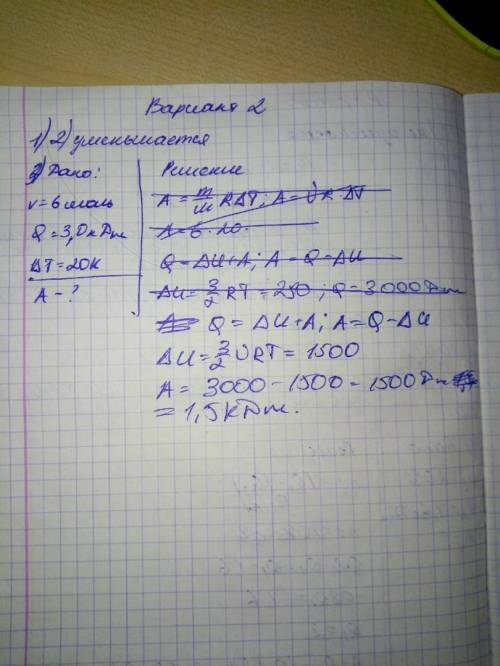 Вариант 2
1) 2) уменьшается
3) Дано:
ν = 6 моль
Q = 3,0 кДж
ΔT = 20К
A - ?
Решение
A = m/M RΔT; A = υR·ΔT
A = 6·20.
Q = ΔU+A; A = Q-ΔU
ΔU = 3/2 RT = 250; Q = 3000 Дж
Q = ΔU+A; A = Q-ΔU
ΔU = 3/2 υRT = 1500
A = 3000 - 1500 = 1500 Дж
= 1,5 кДж.